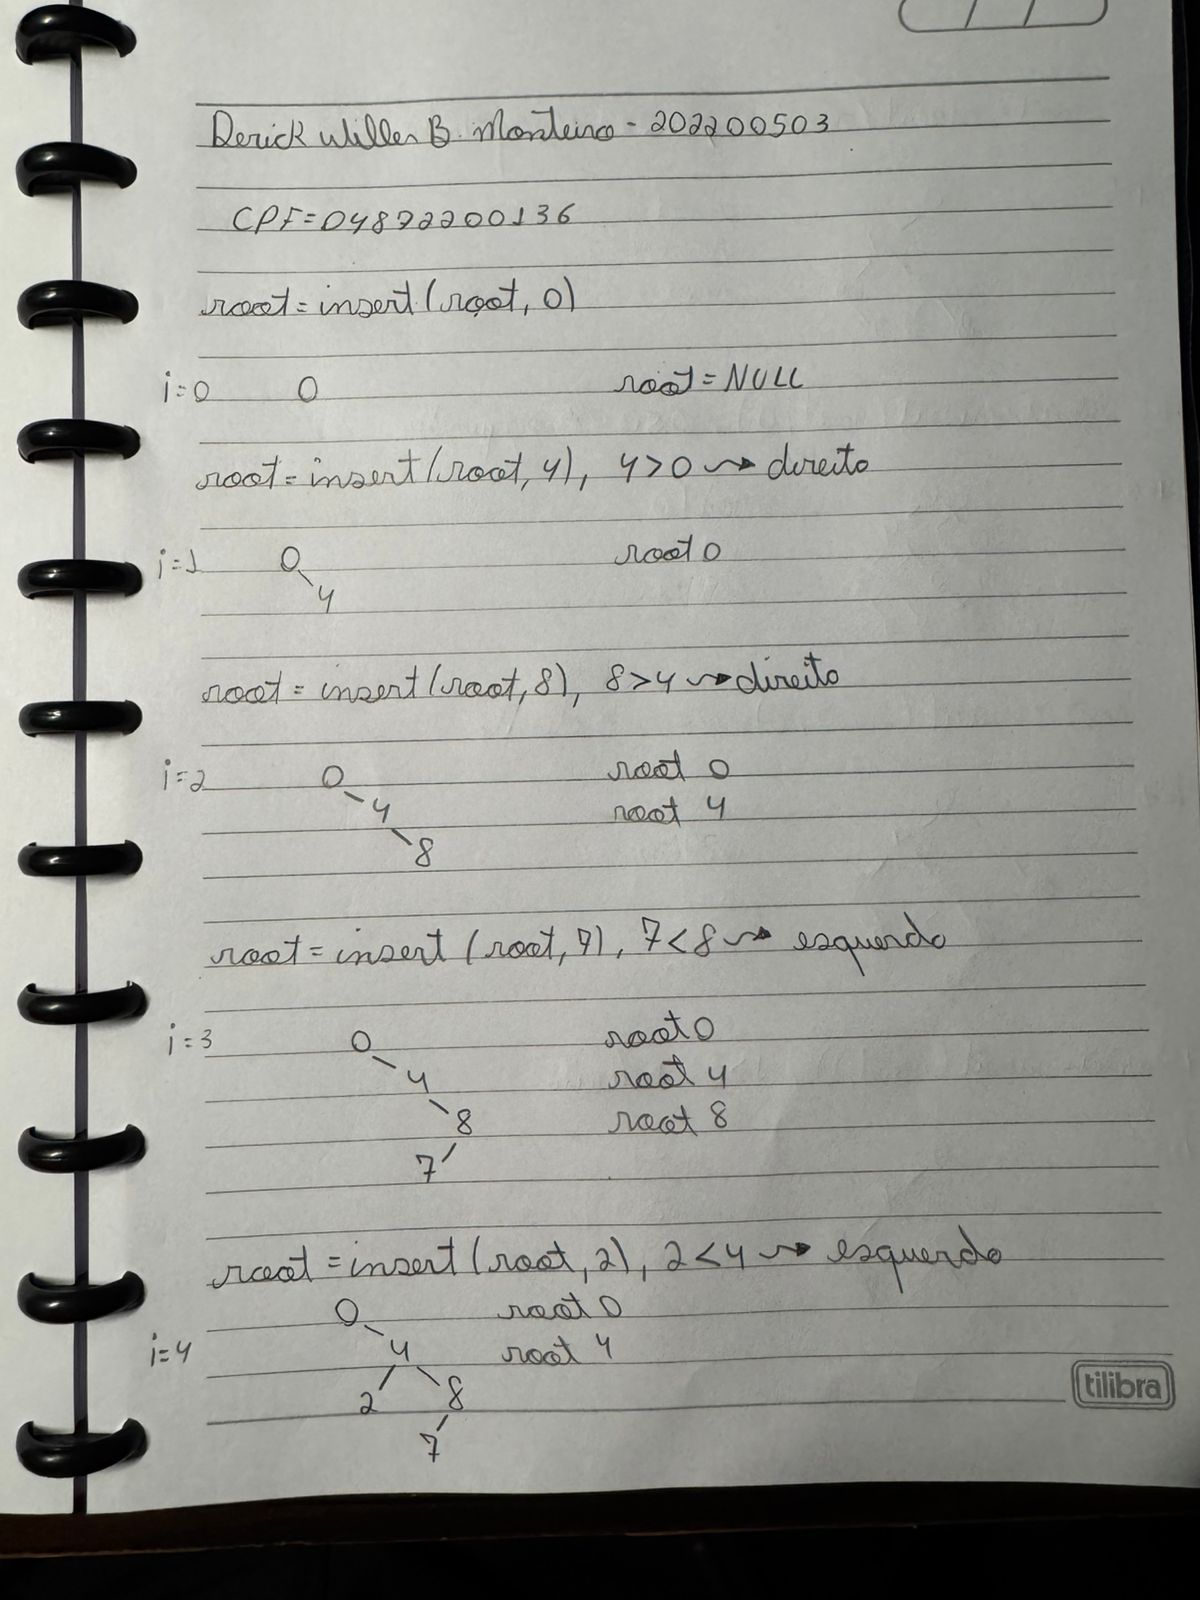 Derick Willen B. Monteiro - 202200503
CPF=04872200136
root=insert(root, 0)
i=0 0 root=NULL
root=insert(root, 4), 4>0 ⇝ direito
i=1 0 root 0
4
root=insert(root, 8), 8>4 ⇝ direito
i=2 0 root 0
4 root 4
8
root=insert(root, 7), 7<8 ⇝ esquerdo
i=3 0 root 0
4 root 4
8 root 8
7
root=insert(root, 2), 2<4 ⇝ esquerdo
0 root 0
i=4 4 root 4
2 8
7
tilibra